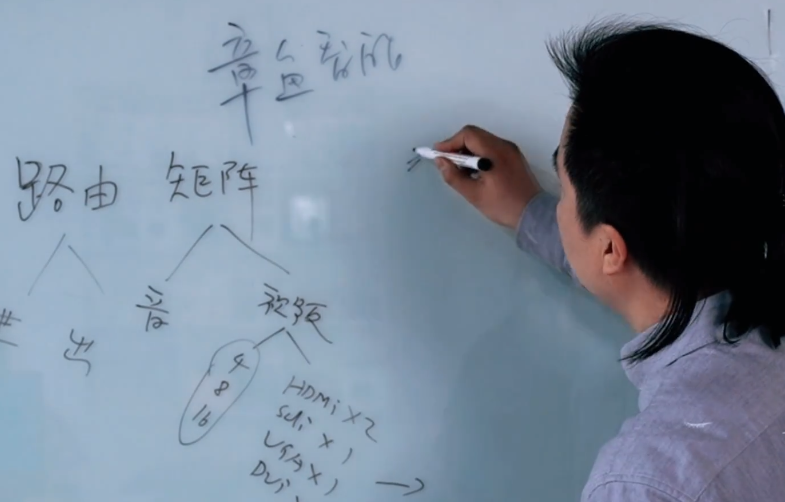 章鱼看机
路由 矩阵
进 出 音 视频
4
8
16
HDMI X2
Sdi X1
VGA X1
DVI